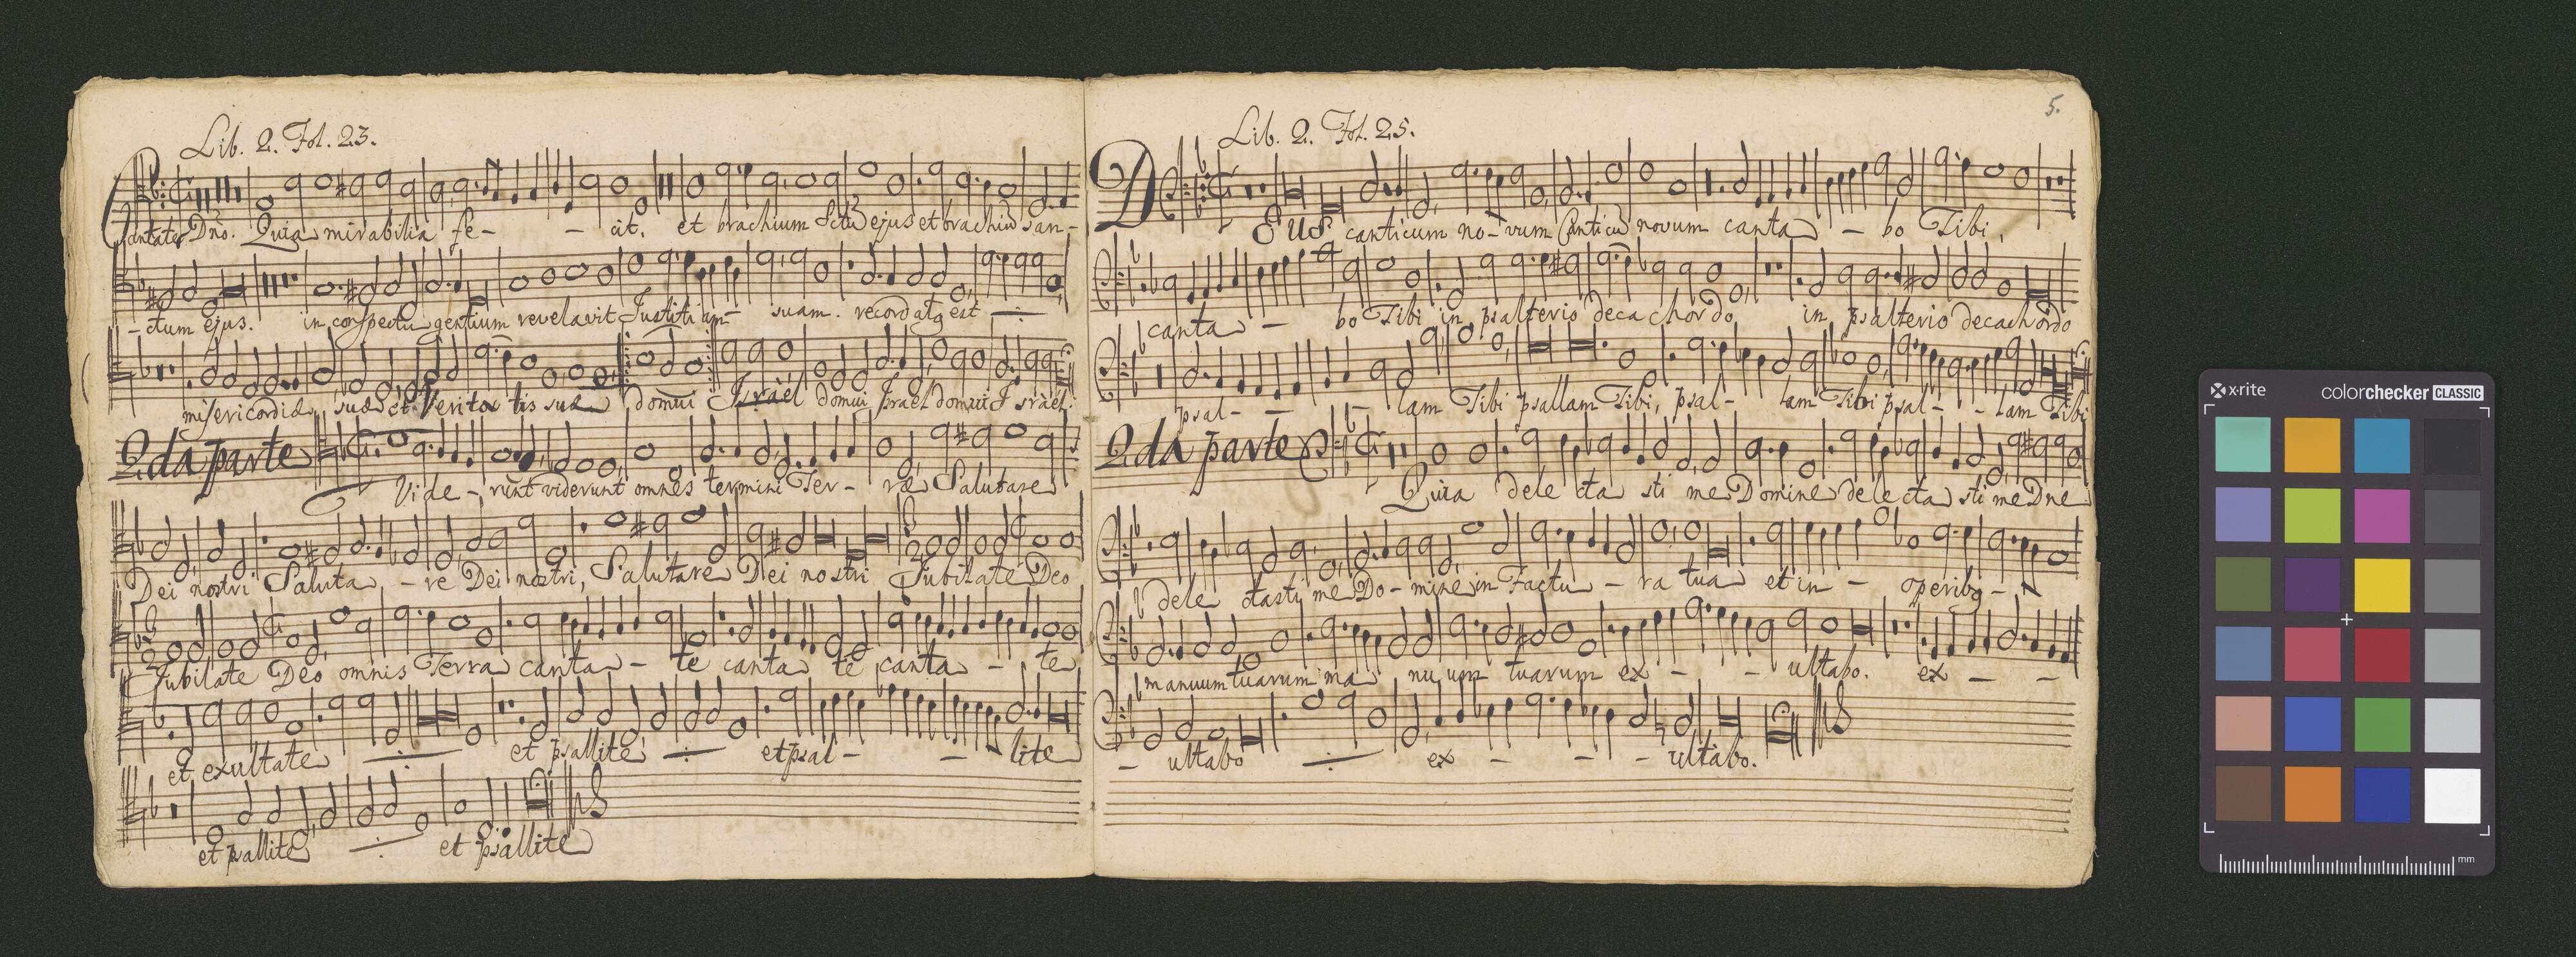 Lib. 2. Fol. 23.
Cantate Dño. Quia mirabilia fe- - cit. et brachium Sctũ ejus et brachiũ san-
-ctum ejus. in conspectu gentium revelavit Justitiam- suam. recordatg est
misericordiæ suæ et Veritatis suæ domui Israèl domui Israèl domui Israèl.
2.da parte
Vide - runt viderunt omnes termini Ter - ræ Salutare
Dei nostri Saluta - re Dei nostri, Salutare Dei nostri Jubilate Deo
Jubilate Deo omnis Terra canta - te canta te canta - te
et exultate et psallite et psal - - lite
et psallite et psallite
5.
Lib. 2. Fol. 25.
DEUS canticum no - vum Canticũ novum canta - bo Tibi,
canta - bo Tibi in psalterio decachordo in psalterio decachordo
psal - - lam Tibi psallam Tibi, psal - lam Tibi psal - - lam Tibi
2.da parte
Quia delectasti me Domine delectasti me Dne
delectasti me Do - mine in Factu - ra tua et in - operibg -
manuum tuarum ma nuum tuarum ex - - ultabo. ex - -
- ultabo ex - - - ultabo.
x-rite
colorchecker CLASSIC
mm